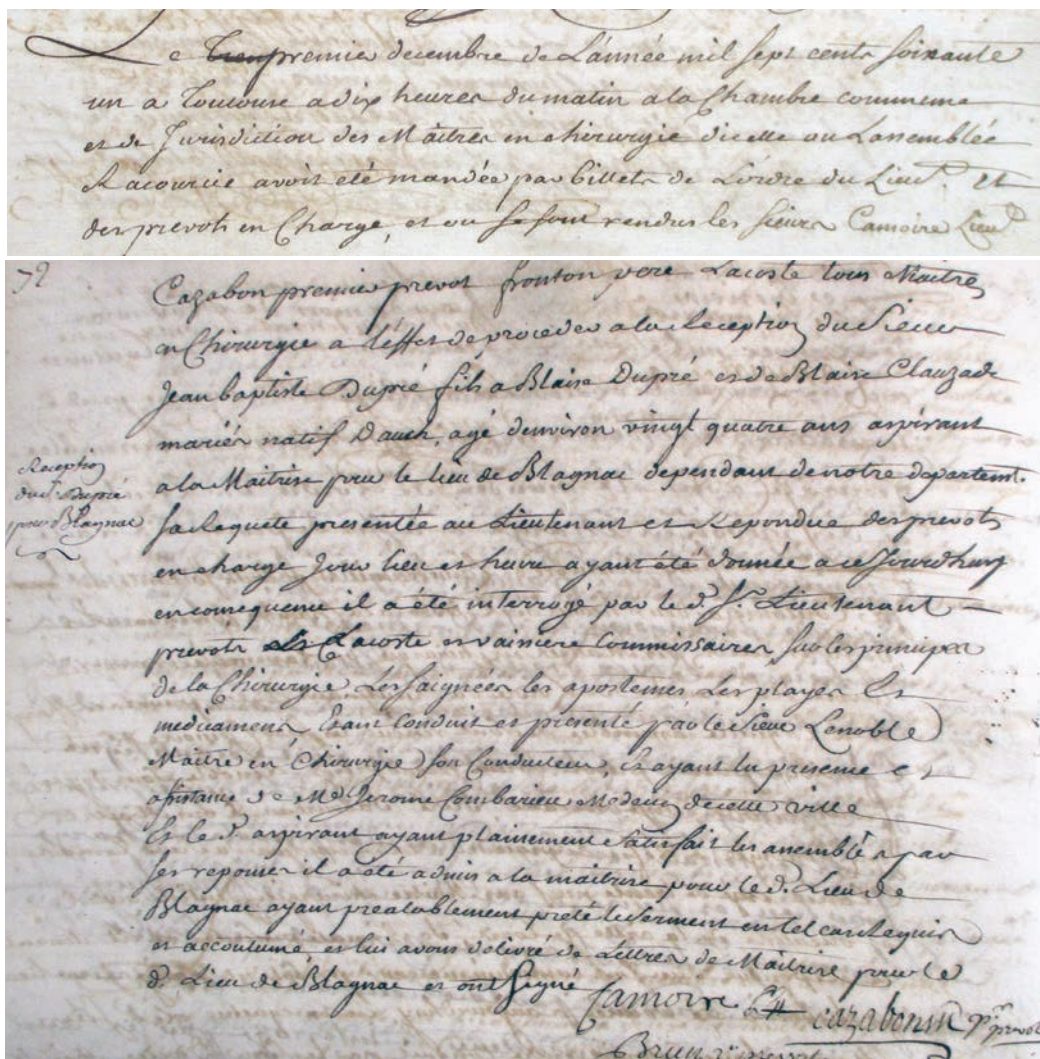 Le premier decembre de L'année mil sept cents soixante
un a Toulouse a dix heures du matin a la Chambre commune
et de Jurisdiction des Maitres en chirurgie dicelle ou Lassemblée
Racourcie avoit eté mandée par billets de L'ordre du Lieut. et
des prevots en Charge, et ou se sont rendus les sieurs Camoire Lieut
72
Cazabon premier prevot fronton pere Lacoste tous Maitres
en Chirurgie a l'effet de proceder a la Reception du Sieur
Jean baptiste Dupré fils a Blaise Dupré et de Blaise Clauzade
mariés natif Dauch, agé denviron vingt quatre ans aspirant
a la Maitrise pour le lieu de Blagnac dependant de notre departemt.
Reception
du Sr. Dupré
pour Blagnac
sa Requete presentée au Lieutenant et Repondue des prevots
en charge Jour lieu et heure ayant été donnée a ce Jourdhuy
en consequence il a été interrogé par le d. Sr. Lieutenant
prevots Lacoste et vaissiere Commissaires, sur les principes
de la Chirurgie Les saignées les apostemes Les playes Les
medicamens Etant Conduit et presenté par le Sieur Lenoble
Maitre en Chirurgie son Conducteur, Et ayant la presence et
assistance de Me. Jerome Combarieu Medecin de cette ville
Et le d. aspirant ayant plainement satisfait les assemblés par
ses reponses il a été admis a la maitrise pour le d. Lieu de
Blagnac ayant prealablement preté le serment en tel cas Requis
et accoutumé, et lui avons delivré de Lettres de Maitrise pour le
d. Lieu de Blagnac et ont signé Camoire Lt cazabon pr. prevot
Brun prevot